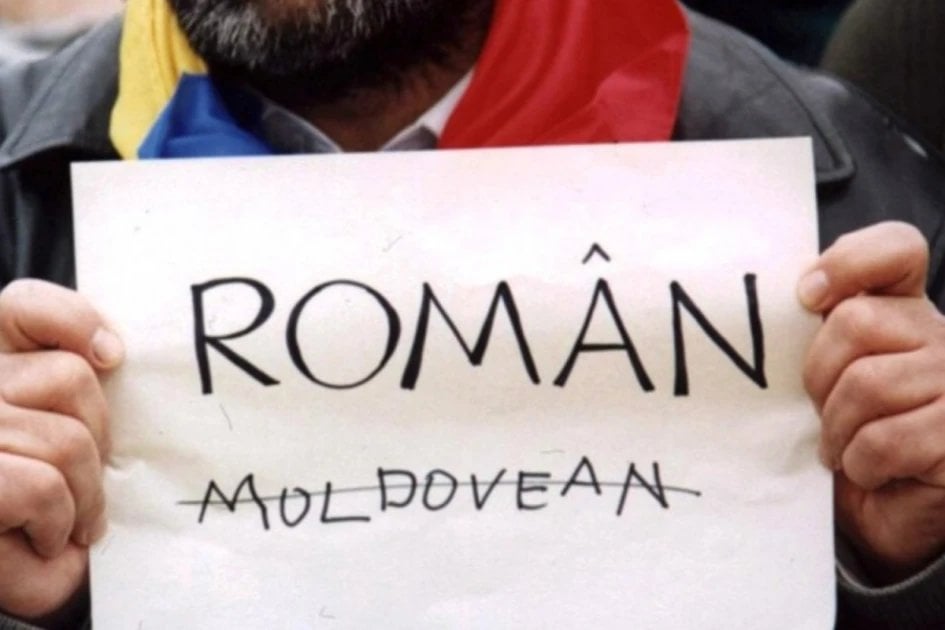 ROMÂN
MOLDOVEAN